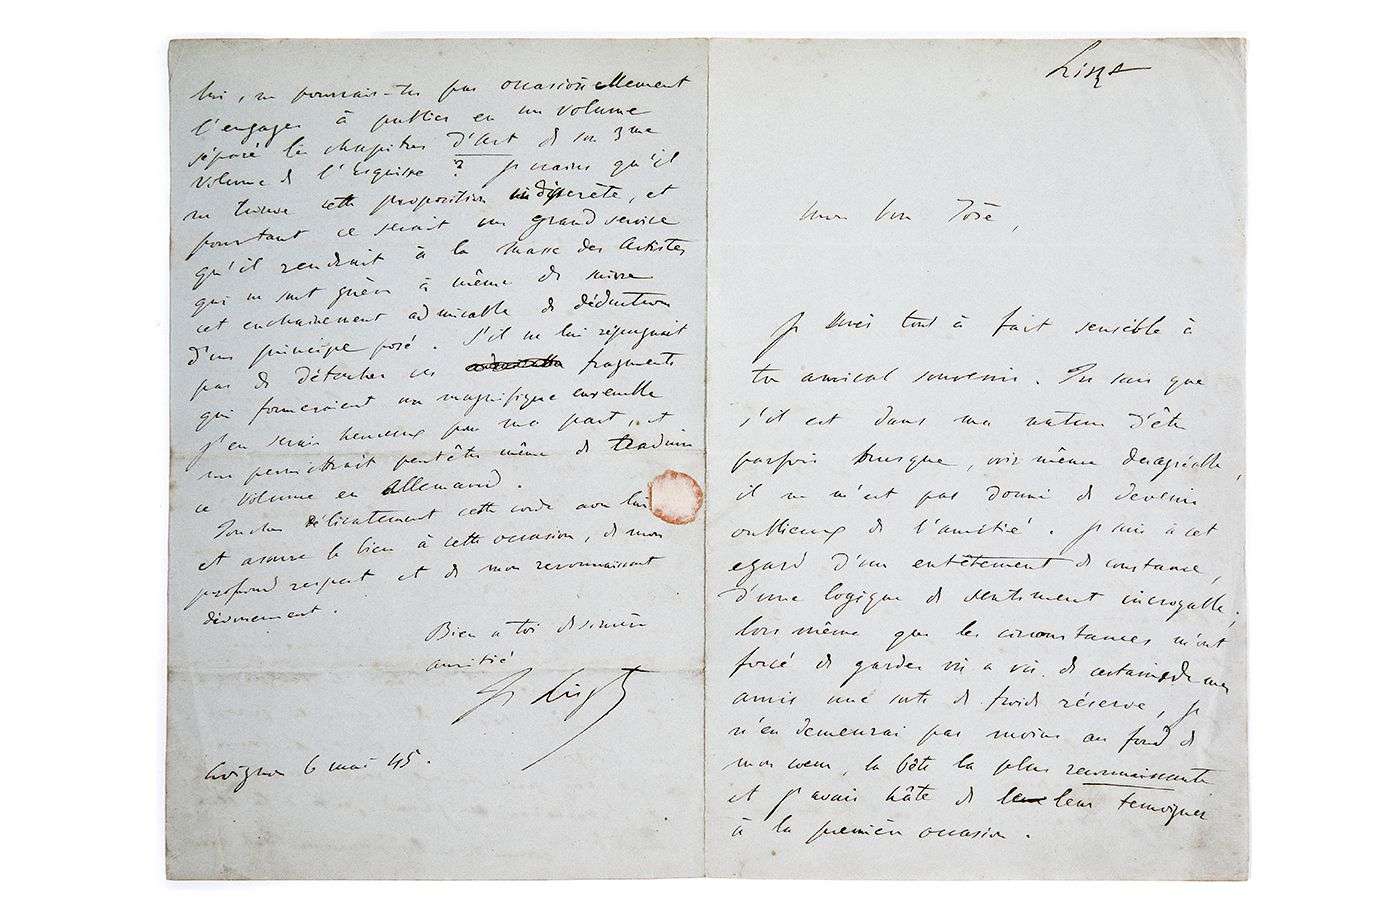 Liszt
Mon bon José,
Je suis tout à fait sensible à
ton amical souvenir. Tu sais que
s'il est dans ma nature d'être
parfois brusque, voir même desagréable,
il ne m'est pas donné de devenir
oublieux de l'amitié. Je suis à cet
egard d'un entêtement de constance,
d'une logique de sentiment incroyable;
lors même que les circonstances m'ont
forcé de garder vis a vis de certains de mes
amis une sorte de froide réserve, je
n'en demeurai pas moins au fond de
mon coeur, la bête la plus reconnaissante
et j'avais hâte de leur temoigner
à la première occasion.
lui, ne pourrais-tu pas occasionellement
l'engager à publier en un volume
séparé les chapitres d'Art de son 3me
volume de l'Esquisse ? Je crains qu'il
ne trouve cette proposition indiscrète, et
pourtant ce serait un grand service
qu'il rendrait à la masse des Artistes
qui ne sont guère à même de suivre
cet enchainement admirable de déduction
d'un principe posé. S'il ne lui répugnait
pas de détacher ces fragments
qui formeraient un magnifique ensemble
j'en serais heureux pour ma part, et
me permettrait peutêtre même de traduire
ce volume en Allemand.
Touches délicatement cette corde avec lui
et assure le bien à cette occasion, de mon
profond respect et de mon reconnaissant
dévouement.
Bien a toi de sincère
amitié
F. Liszt
Avignon 6 mai 45.